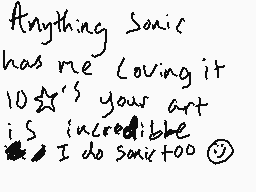 Anything Sonic
has me loving it
10 ☆'s your art
is incredible
I do sonic too ☺